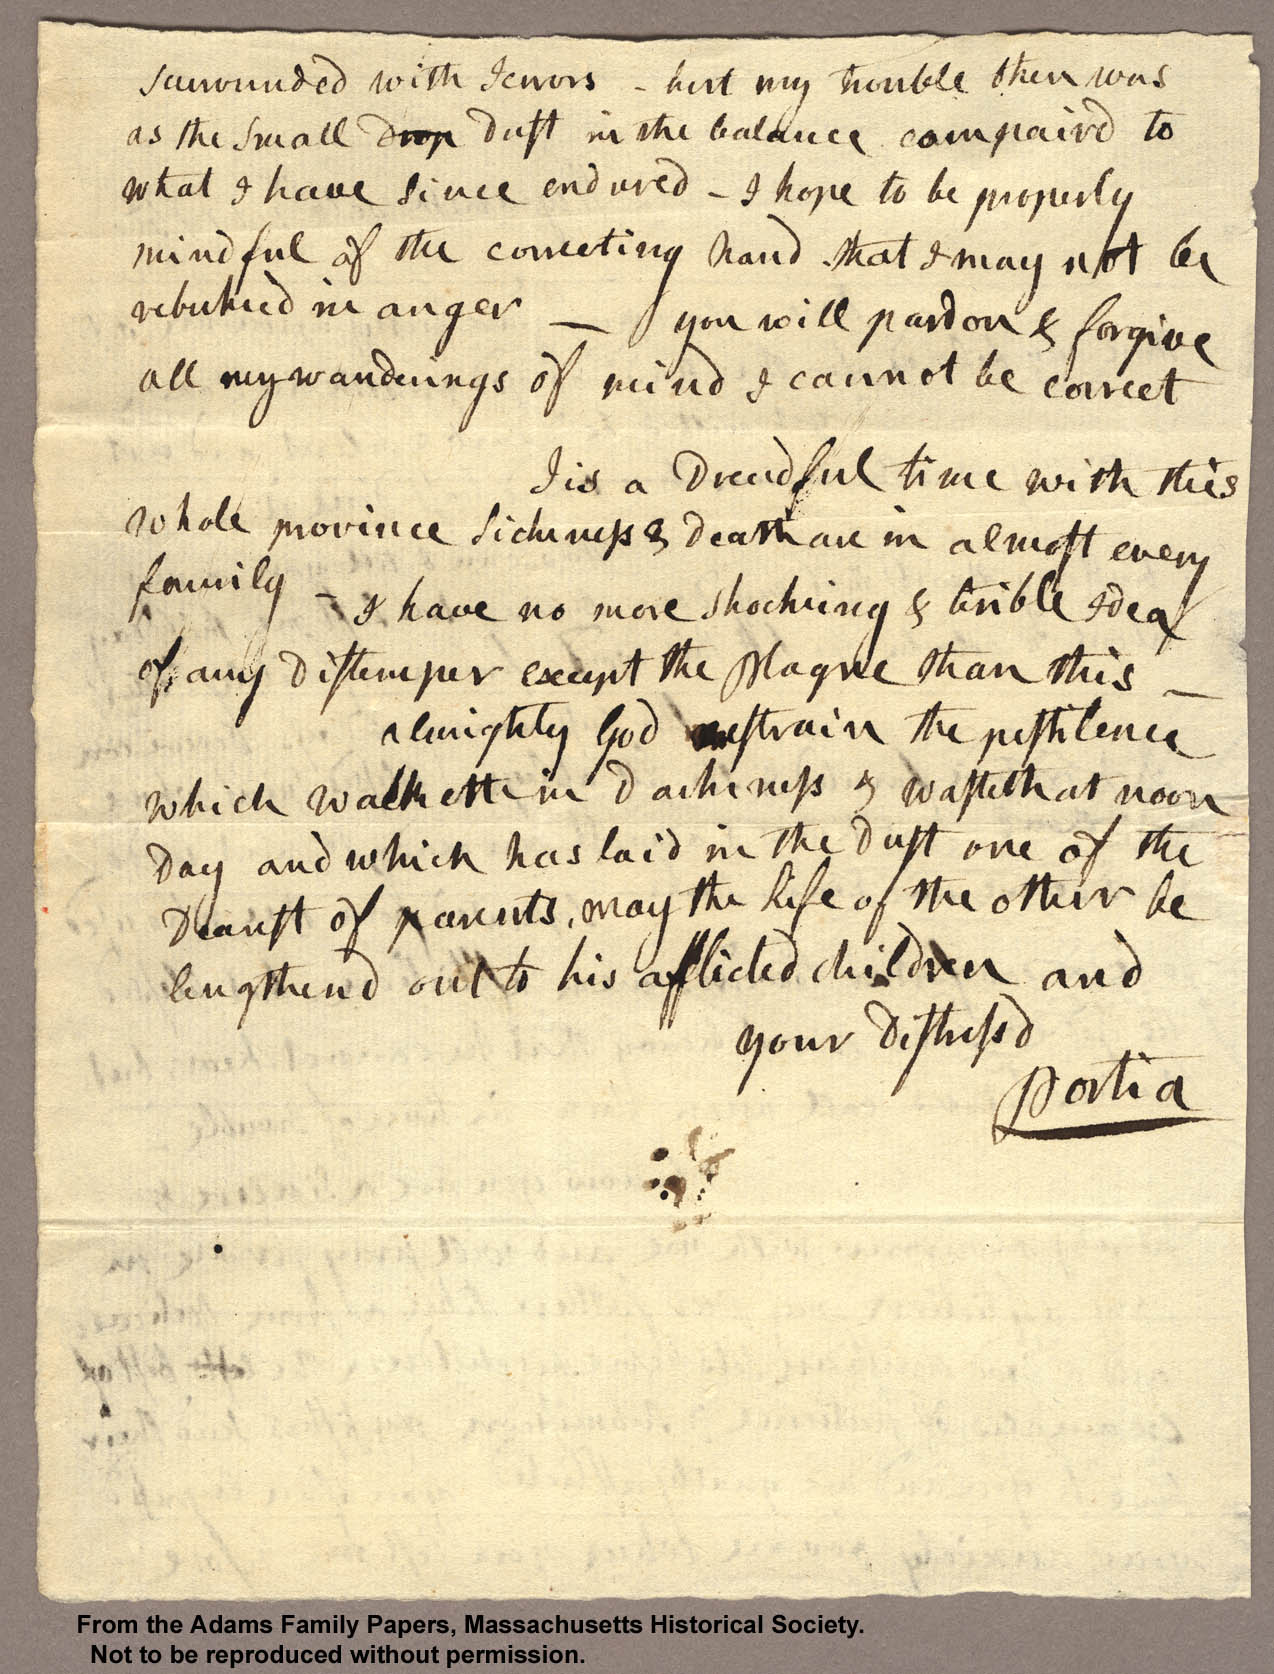 surrounded with Terrors - but my trouble then was
as the small Drop Dust in the balance compaird to
what I have since endured - I hope to be properly
mindful of the correcting hand. that I may not be
rebukeed in anger — you will pardon & forgive
all my wanderings of mind I cannot be correct
Tis a Dreadful time with this
whole province Sickness & Death are in almost every
family - I have no more shocking & terible Idea
of any Distemper except the Plague than this —
almighty God restrain the pestilence
which walketh in Darkness & wasteth at noon
Day and which has laid in the Dust one of the
Dearest of parents, may the life of the other be
lengthend out to his afflicted children and
your Distressd
Portia
From the Adams Family Papers, Massachusetts Historical Society.
Not to be reproduced without permission.